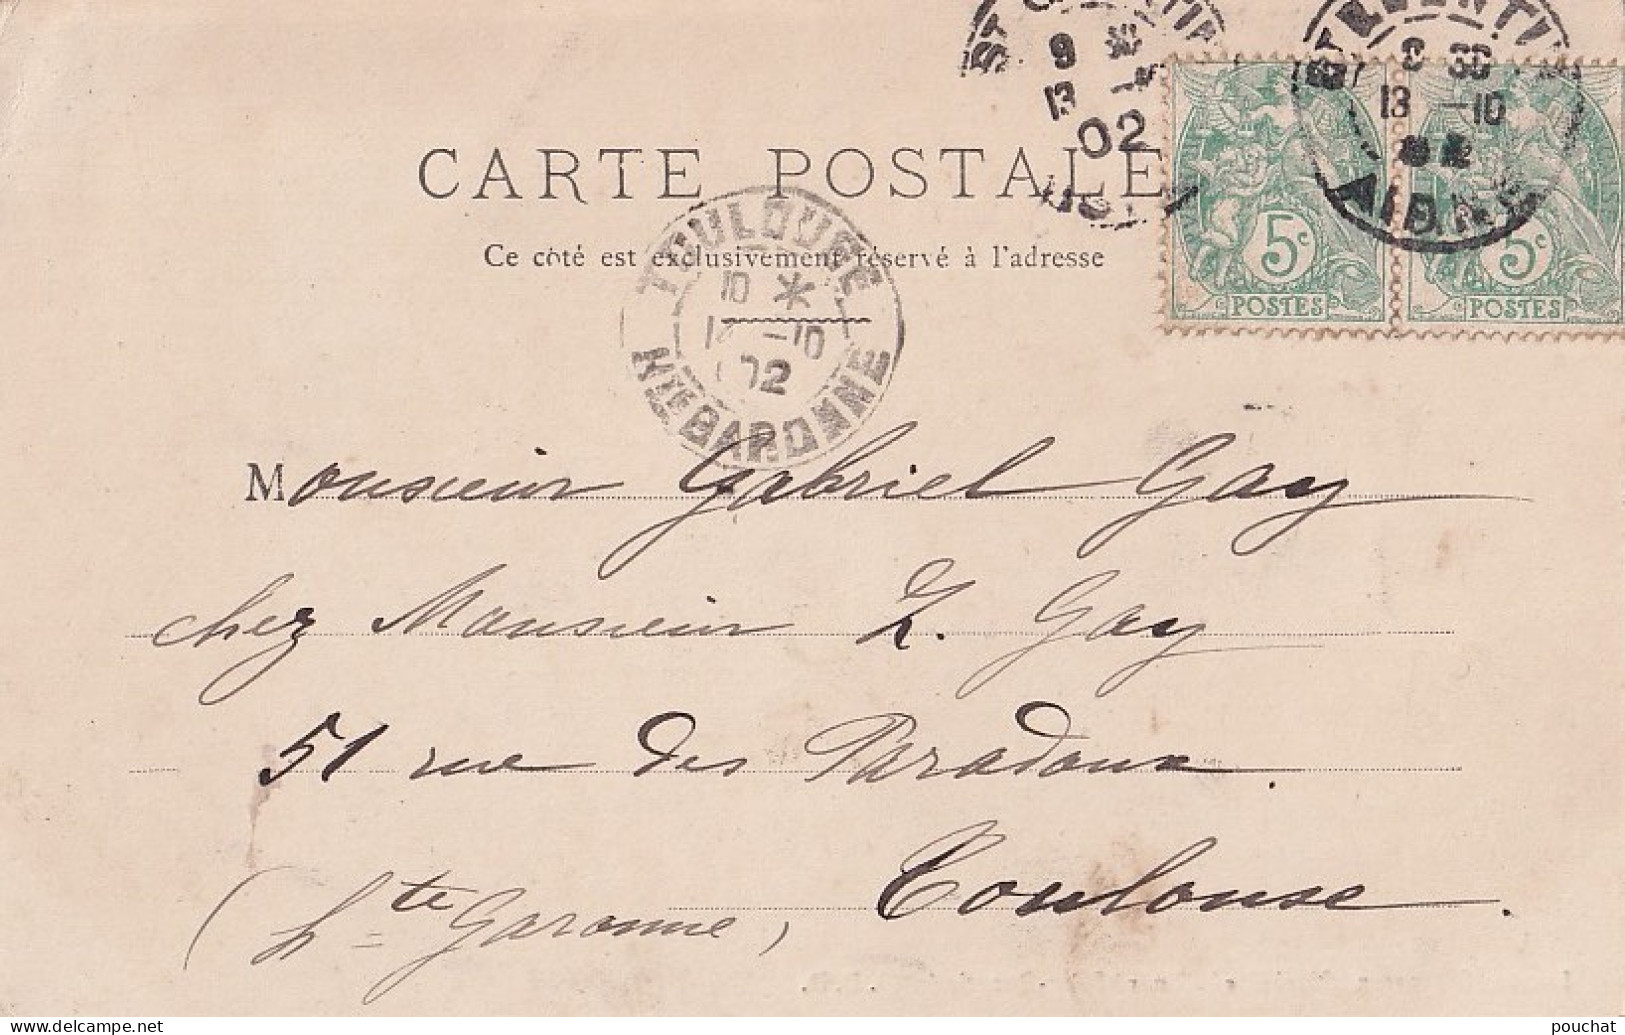 CARTE POSTALE
Ce côté est exclusivement réservé à l'adresse
9 *
13
02
9 30
13 -10
AISNE
5c 5c
POSTES POSTES
TOULOUSE
10 *
-10
02
HTE GARONNE
Monsieur Gabriel Gay
chez Monsieur Z. Gay
51 rue des Paradoux.
Toulouse.
(hte Garonne)
delcampe.net
pouchat